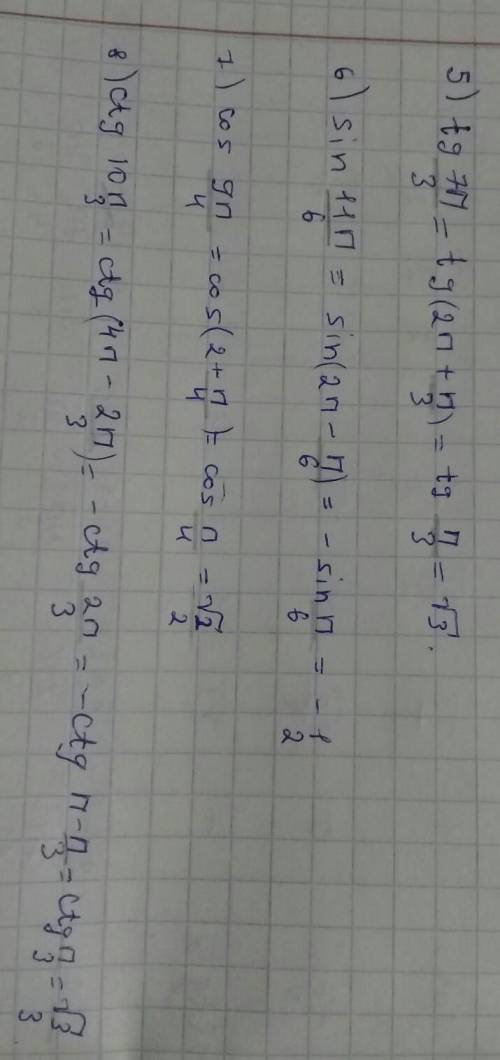 5) tg 7π/3 = tg(2π + π/3) = tg π/3 = √3.
6) sin 11π/6 = sin(2π - π/6) = - sin π/6 = - 1/2
7) cos 9π/4 = cos(2 + π/4) = cos π/4 = √2/2
8) ctg 10π/3 = ctg(4π - 2π/3) = - ctg 2π/3 = - ctg π - π/3 = ctg π/3 = √3/3